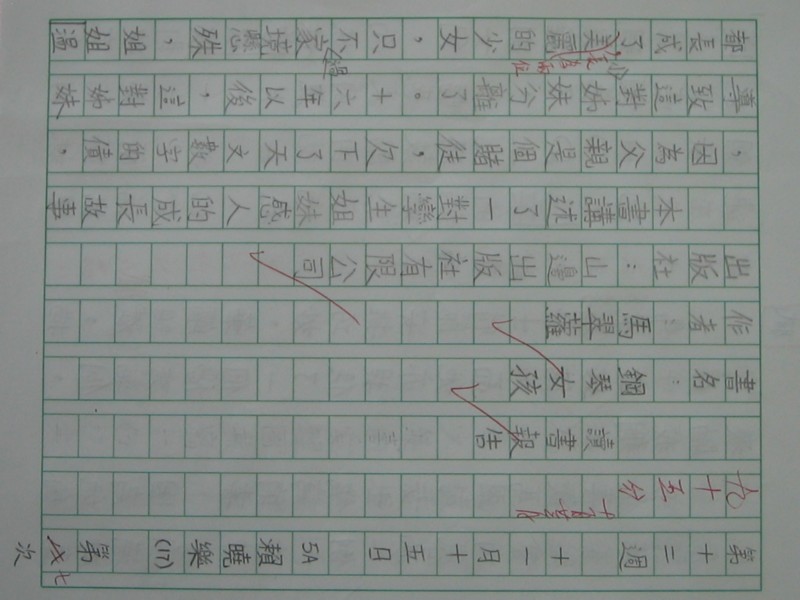 第十二週 十一月十五日 5A 賴曉樂 (17) 第七次
十五分
讀書報告
書名：鋼琴女孩
作者：馬翠蘿
出版社：山邊出版社有限公司
本書講述了一對孿生姐妹感人的成長故事
，因為父親是個賭徒，欠下了天文數字的債，
導致這對姊妹分離了。十六年以後，這對姊妹
都長成了美麗的少女，只不過家境懸殊，姐姐溫